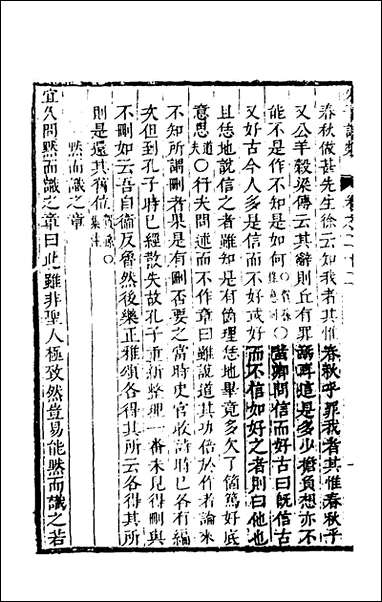 春秋做甚先生徐云知我者其惟春秋乎罪我者其惟春秋乎
又公羊穀梁傳云其辭則丘有罪焉耳這是多少擔負想亦不
能不是作不知是如何賀孫○黃卿問信而好古曰旣信古
又好古今人多是信而不好或好而不信如好之者則曰他也
且恁地說信之者雖知是有箇理恁地畢竟多欠了箇篤好底
意思道夫○行夫問述而不作章曰雖說道其功倍於作者論來
不知所謂刪者果是有刪否要之當時史官收詩時已各有編
次但到孔子時已經散失故孔子重新整理一番未見得刪與
不刪如云吾自衛反魯然後樂正雅頌各得其所云各得其所
則是還其舊位賀孫○集註
默而識之章
宜久問默而識之章曰此雖非聖人極致然豈易能默而識之若